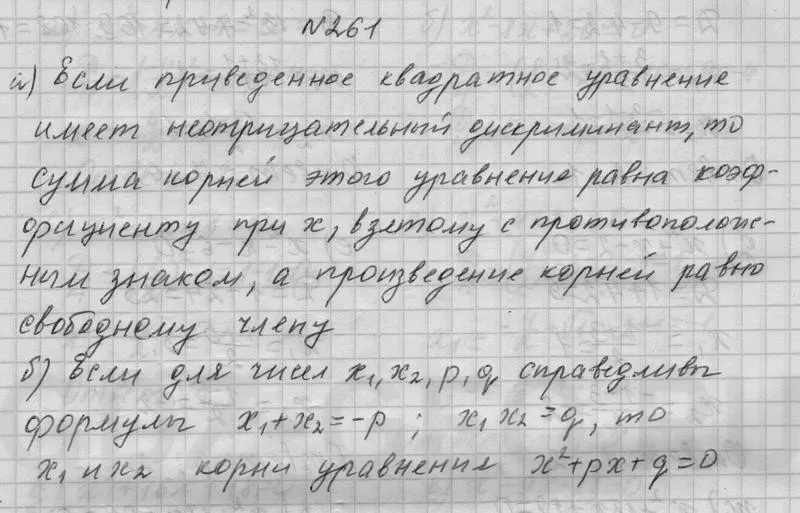 №261
а) Если приведенное квадратное уравнение
имеет неотрицательный дискриминант, то
сумма корней этого уравнения равна коэф-
фициенту при x, взятому с противополож-
ным знаком, а произведение корней равно
свободному члену
б) Если для чисел x₁, x₂, p, q справедливы
формулы x₁+x₂=-p; x₁ x₂=q, то
x₁ и x₂ корни уравнения x²+px+q=0